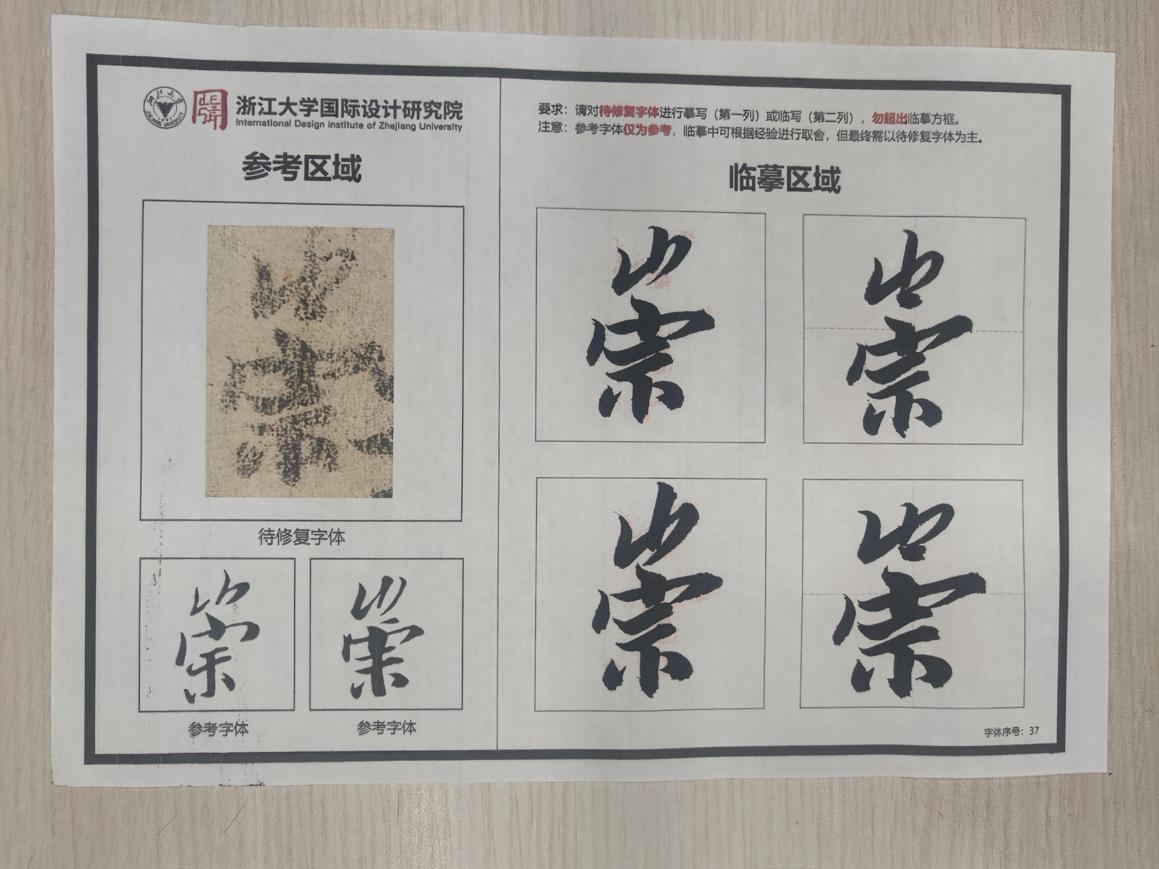 浙江大学国际设计研究院
International Design Institute of Zhejiang University
参考区域
崇
待修复字体
崇
崇
参考字体
参考字体
要求：请对待修复字体进行摹写（第一列）或临写（第二列），勿超出临摹方框。
注意：参考字体仅为参考，临摹中可根据经验进行取舍，但最终需以待修复字体为主。
临摹区域
崇
崇
崇
崇
字体序号：37